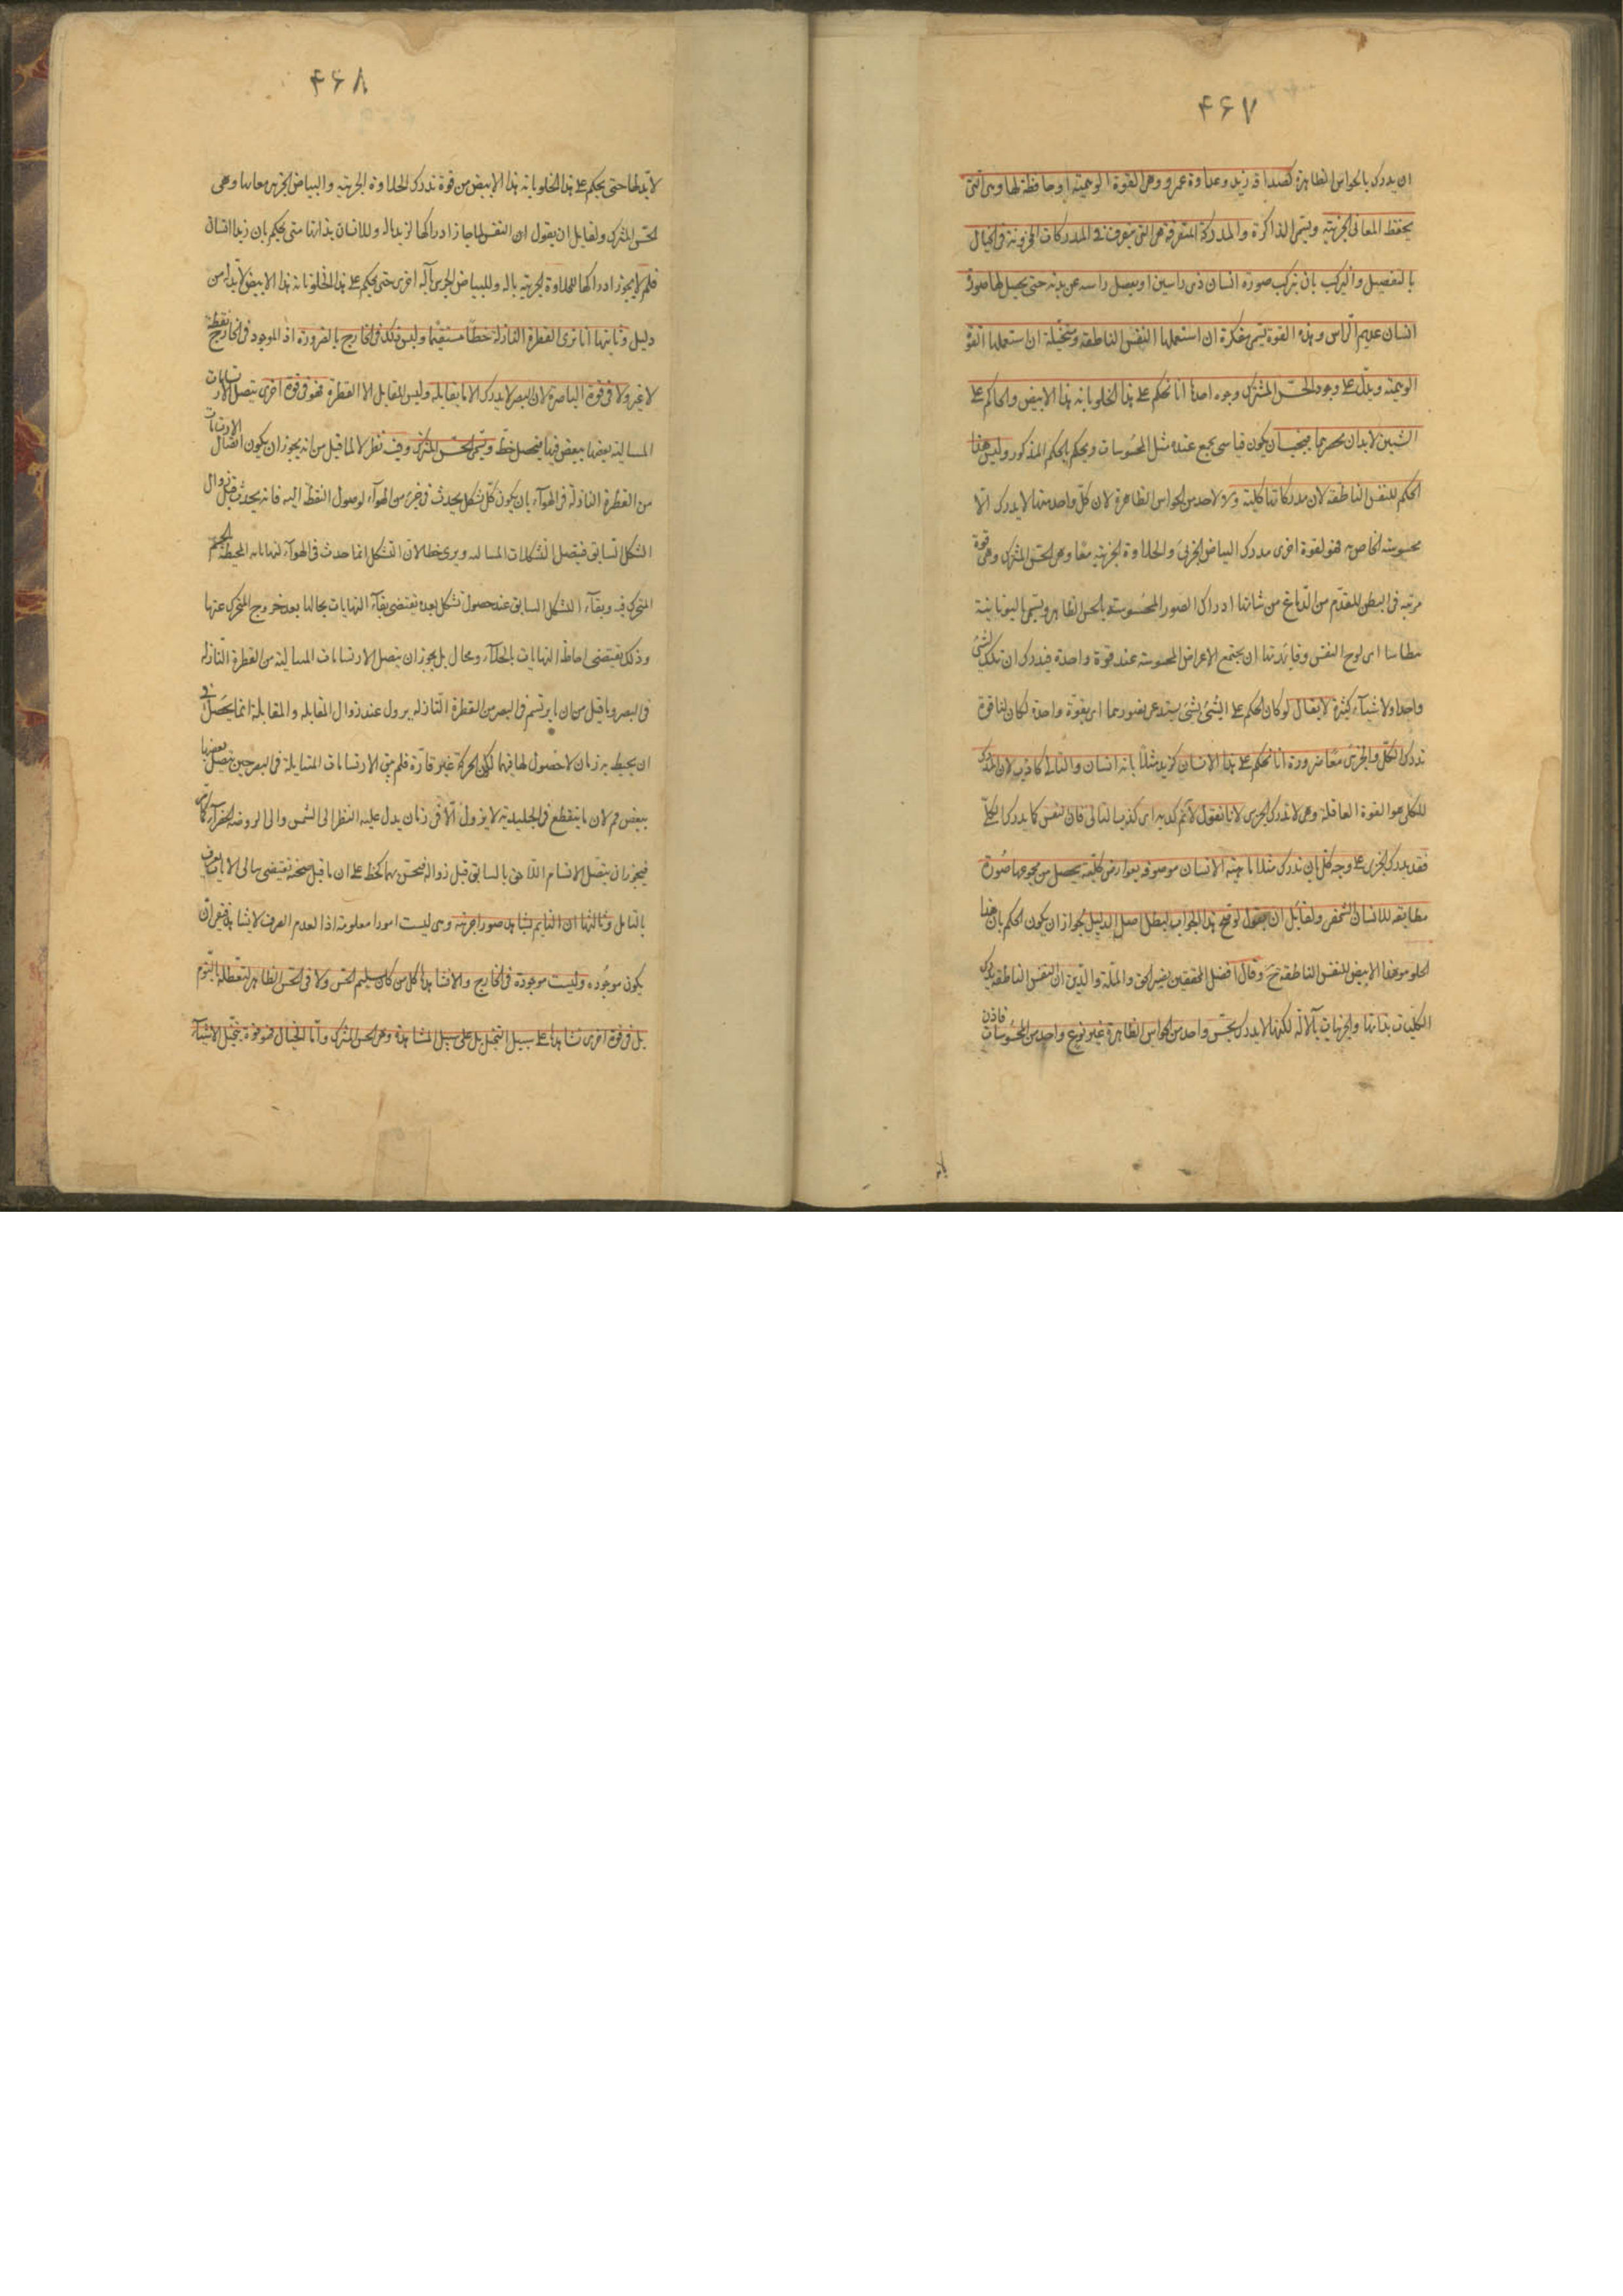 ۴۶۷
ان يدرك بالحواس الظاهرة كصداقة زيد وعداوة عمرو وهى القوة الوهمية او حافظة لها وهى التى
يحفظ المعانى الجزئية ويسمى الذاكرة والمدركة المتصرفة هى التى يتصرف فى المدركات المخزونة فى الخيال
بالتفصيل والتركيب بان تركب صورة انسان ذى راسين او يفصل راسه عن بدنه حتى يحصل لها صورة
انسان عديم الراس وهذه القوة يسمى مفكرة ان استعملها النفس الناطقة ومتخيلة ان استعملها القوة
الوهمية ويدل على وجود الحس المشترك وجوه احدها انا نحكم على هذا الحلو بانه هذا الابيض والحاكم على
الشيئين لابد ان يحضرهما فيجب ان يكون فينا شئ يجمع عنده مثل المحسوسات ويحكم بالحكم المذكور وليس هذا
الحكم للنفس الناطقة لان مدركاتها كلية ولا لاحد من الحواس الظاهرة لان كل واحد منها لا يدرك الا
محسوسه الخاص به فهو لقوة اخرى مدرك البياض الجزئى والحلاوة الجزئية معا وهى الحس المشترك وهى قوة
مرتبة فى البطن المقدم من الدماغ من شانها ادراك الصور المحسوسة بالحس الظاهر ويسمى باليونانية
بنطاسيا اى لوح النفس وفائدتها ان يجتمع الاعراض المحسوسة عند قوة واحدة فيدرك ان تلك لشئ
واحد او لاشياء كثيرة لا يقال لو كان الحكم على الشئ بشئ يستدعى حضورهما اى بقوة واحدة لكان لنا قوة
تدرك الكل والجزئى معا ضرورة انا نحكم على هذا الانسان كزيد مثلا بانه انسان والتالى كاذب لان المدرك
للكلى هو القوة العاقلة وهى لا تدرك الجزئى لانا نقول لا نم كذبه اى كذب التالى فان النفس كما يدرك الكلى
فقد يدرك الجزئى على وجه كلى بان تدرك مثلا ماهية الانسان موصوفة بعوارض كلية يحصل من مجموعها صورة
مطابقة للانسان الشخصى ولقائل ان يقول لو صح هذا الجواب لبطل اصل الدليل لجواز ان يكون الحكم بان هذا
الحلو هو هذا الابيض للنفس الناطقة ح وقال افضل المحققين نصير الحق والملة والدين ان النفس الناطقة يدرك
الكليات بذاتها والجزئيات بآلاته لكنها لا يدرك بحس واحد من الحواس الظاهرة غير نوع واحد من المحسوسات فاذن
۴۶۸
لابد لها حتى يحكم على هذا الحلو بانه هذا الابيض من قوة تدرك الحلاوة الجزئية والبياض الجزئى معا بها وهى
الحس المشترك ولقايل ان يقول ان النفس لما جاز ادراكها لزيد بالة وللانسان بذاتها حتى يحكم بان زيدا انسان
فلم لا يجوز ادراكها للحلاوة الجزئية بالة وللبياض الجزئى بآلة اخرى حتى يحكم على هذا الحلو بانه هذا الابيض لابد له من
دليل وثانيها انا نرى القطرة النازلة خطا مستقيما وليس ذلك فى الخارج بالضرورة اذ الموجود فى الخارج نقطة
لا غير ولا فى قوة الباصرة لان البصر لا يدرك الا ما يقابله وليس المقابل الا القطرة فهو فى قوة اخرى يتصل الارتسامات
المتتالية بعضها ببعض فيها فيحصل خط ويسمى الحس المشترك وفيه نظر لا لما قيل من انه يجوز ان يكون اتصال الارتسامات
من القطرة النازلة فى الهواء بان يكون كل شكل يحدث فى جزء من الهواء لوصول النقطة اليه فانه يحدث قبل زوال
الشكل السابق فيتصل التشكلات المتتالية ويرى خطا لان التشكل انما حدث فى الهواء لنهاياته المحيطة بالجسم
المتحرك فيه وبقاء التشكل السابق عند حصول تشكل بعده يقتضى بقاء النهايات بحالها بعد خروج المتحرك عنها
وذلك يقتضى احاطة النهايات بالخلاء وهو محال بل يجوز ان يتصل الارتسامات المتتالية من القطرة النازلة
فى البصر وما قيل من ان ما يرتسم فى البصر من القطرة النازلة يزول عند زوال المقابلة والمقابلة انما يحصل فى
ان يحيط به زمان لا حصول لها فيهما لكون الحركة غير قارة فلم يبق الارتسامات المتتالية فى البصر حين يتصل بعضها
ببعض مم لان ما ينطبع فى الجليدية لا يزول الا فى زمان يدل عليه النظر الى الشمس والى الروضة الخضراء كما مر
فيجوز ان يتصل الارتسام اللاحق بالسابق قبل زواله فيحس بهما كخط على ان ما قيل
بالتامل وثالثها ان النايم يشاهد صورا جزئية وهى ليست امورا معلومة اذ العدم الصرف لا يشاهد فبقى ان
يكون موجودة وليست موجودة فى الخارج والا لشاهدها كل من كان سليم الحس ولا فى الحس الظاهر لتعطله بالنوم
بل فى قوة اخرى نشاهدها على سبيل التخيل بل على سبيل المشاهدة وهى الحس المشترك واما الخيال فهو قوة يتخيل الاشياء